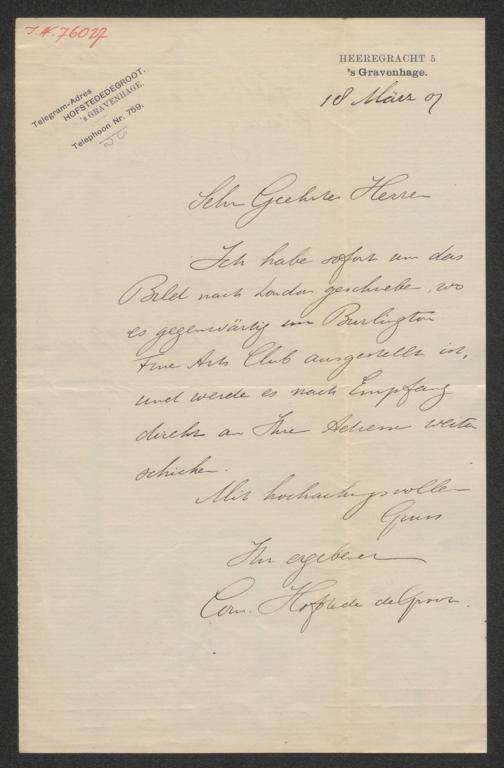 J.N. 76027
Telegram-Adres
HOFSTEDEDEGROOT.
's GRAVENHAGE.
Telephoon Nr. 759.
HEEREGRACHT 5
's Gravenhage.
18 März 07
Sehr Geehrte Herren
Ich habe sofort um das
Bild nach London geschrieben, wo
es gegenwärtig im Burlington
Fine Arts Club ausgestellt ist,
und werde es nach Empfang
direkt an Ihre Adresse weiter
schicken.
Mit hochachtungsvollen
Gruss
Ihr ergebener
Corn. Hofstede de Groot.